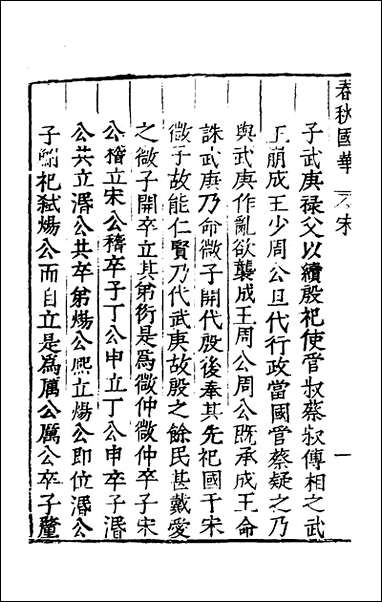 春秋國華 宋 一
子武庚禄父以續殷祀使管叔蔡叔傅相之武
王崩成王少周公旦代行政當國管蔡疑之乃
與武庚作亂欲襲成王周公周公既承成王命
誅武庚乃命微子開代殷後奉其先祀國于宋
微子故能仁賢乃代武庚故殷之餘民甚戴愛
之微子開卒立其弟衍是爲微仲微仲卒子宋
公稽立宋公稽卒子丁公申立丁公申卒子湣
公共立湣公共卒弟煬公熙立煬公即位湣公
子鮒祀弒煬公而自立是爲厲公厲公卒子釐